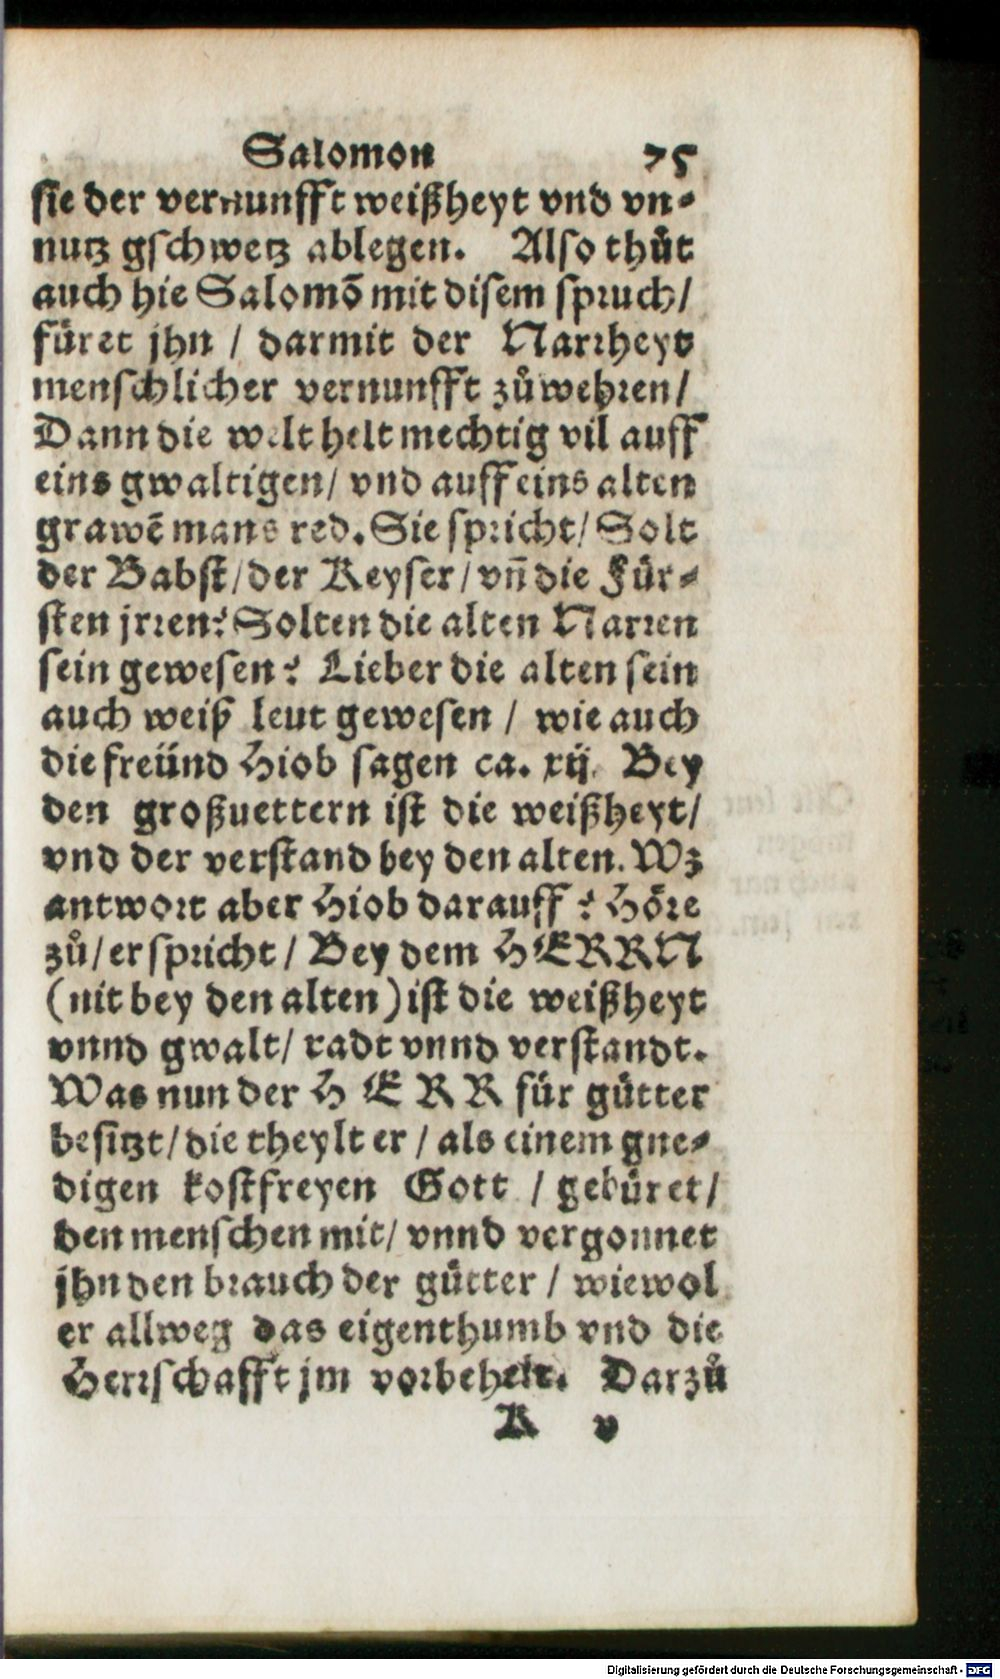 Salomon 75
sie der vernunfft weißheyt vnd vn-
nutz gschwetz ablegen. Also thůt
auch hie Salomō mit disem spruch/
füret jhn / darmit der Narrheyt
menschlicher vernunfft zůwehren/
Dann die welt helt mechtig vil auff
eins gwaltigen/ vnd auff eins alten
grawē mans red. Sie spricht/ Solt
der Babst/der Keyser/vn̄ die Für-
sten jrren? Solten die alten Narren
sein gewesen? Lieber die alten sein
auch weiß leut gewesen / wie auch
die freünd Hiob sagen ca. xij. Bey
den großuettern ist die weißheyt/
vnd der verstand bey den alten. Wz
antwort aber Hiob darauff? Höre
zů/er spricht/ Bey dem HERRN
(nit bey den alten) ist die weißheyt
vnnd gwalt/ radt vnnd verstandt.
Was nun der HERR für gütter
besitzt/die theylt er/ als einem gne-
digen kostfreyen Gott / gebüret/
den menschen mit/ vnnd vergonnet
jhn den brauch der gütter / wiewol
er allweg das eigenthumb vnd die
Herrschafft jm vorbehelt. Darzů
K v
Digitalisierung gefördert durch die Deutsche Forschungsgemeinschaft - DFG